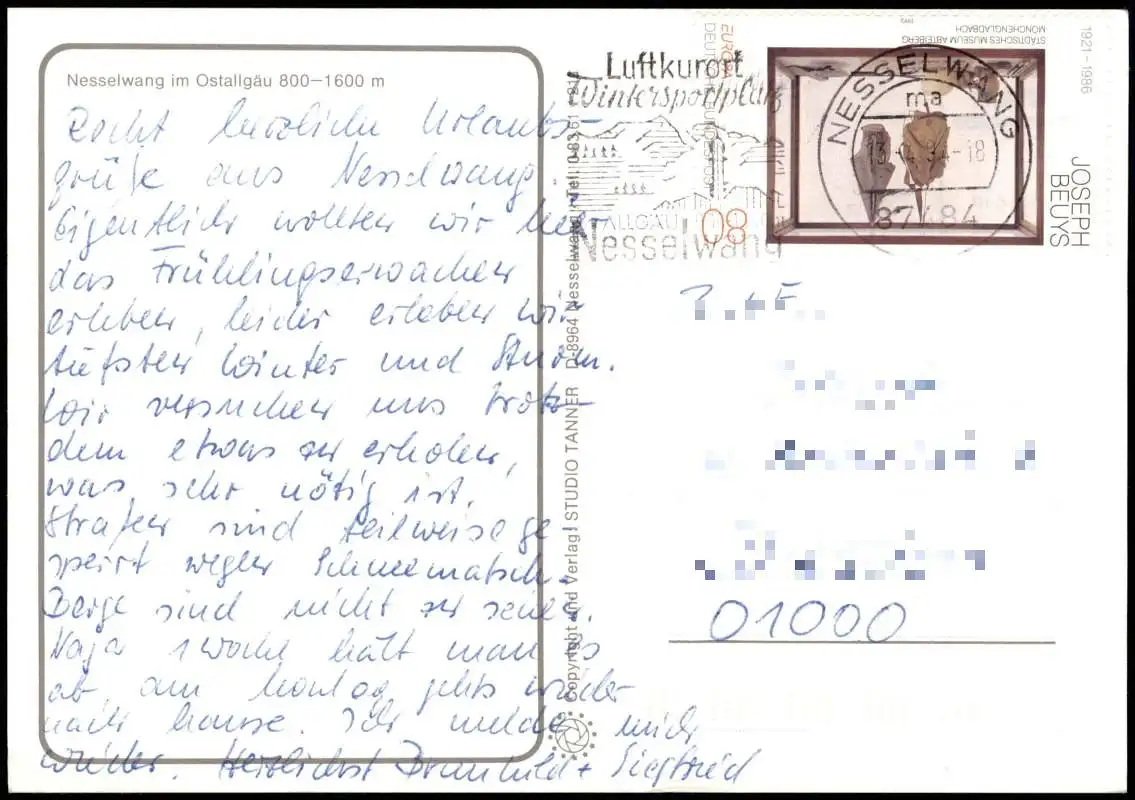 Nesselwang im Ostallgäu 800–1600 m
Recht herzliche Urlaubs-
grüße aus Nesselwang.
Eigentlich wollten wir hier
das Frühlingserwachen
erleben, leider erleben wir
tiefsten Winter und Sturm.
Wir versuchen uns trotz-
dem etwas zu erholen,
was sehr nötig ist.
Straßen sind teilweise ge-
sperrt wegen Schneematsch.
Berge sind nicht zu sehen.
Naja 1 Woche hält man's
ab, am Montag gehts wieder
nach hause. Ich melde mich
wieder. Herzlichst Brunhild + Siegfried
Copyright und Verlag: STUDIO TANNER D-8964 Nesselwang Tel.
Luftkurort
Wintersportplatz
ALLGÄU
Nesselwang
NESSELWANG
ma
-18
87484
EUROPA
DEUTSCHE BUNDESPOST
80
STÄDTISCHES MUSEUM ABTEIBERG
MÖNCHENGLADBACH
1993
1921-1986
JOSEPH
BEUYS
01000